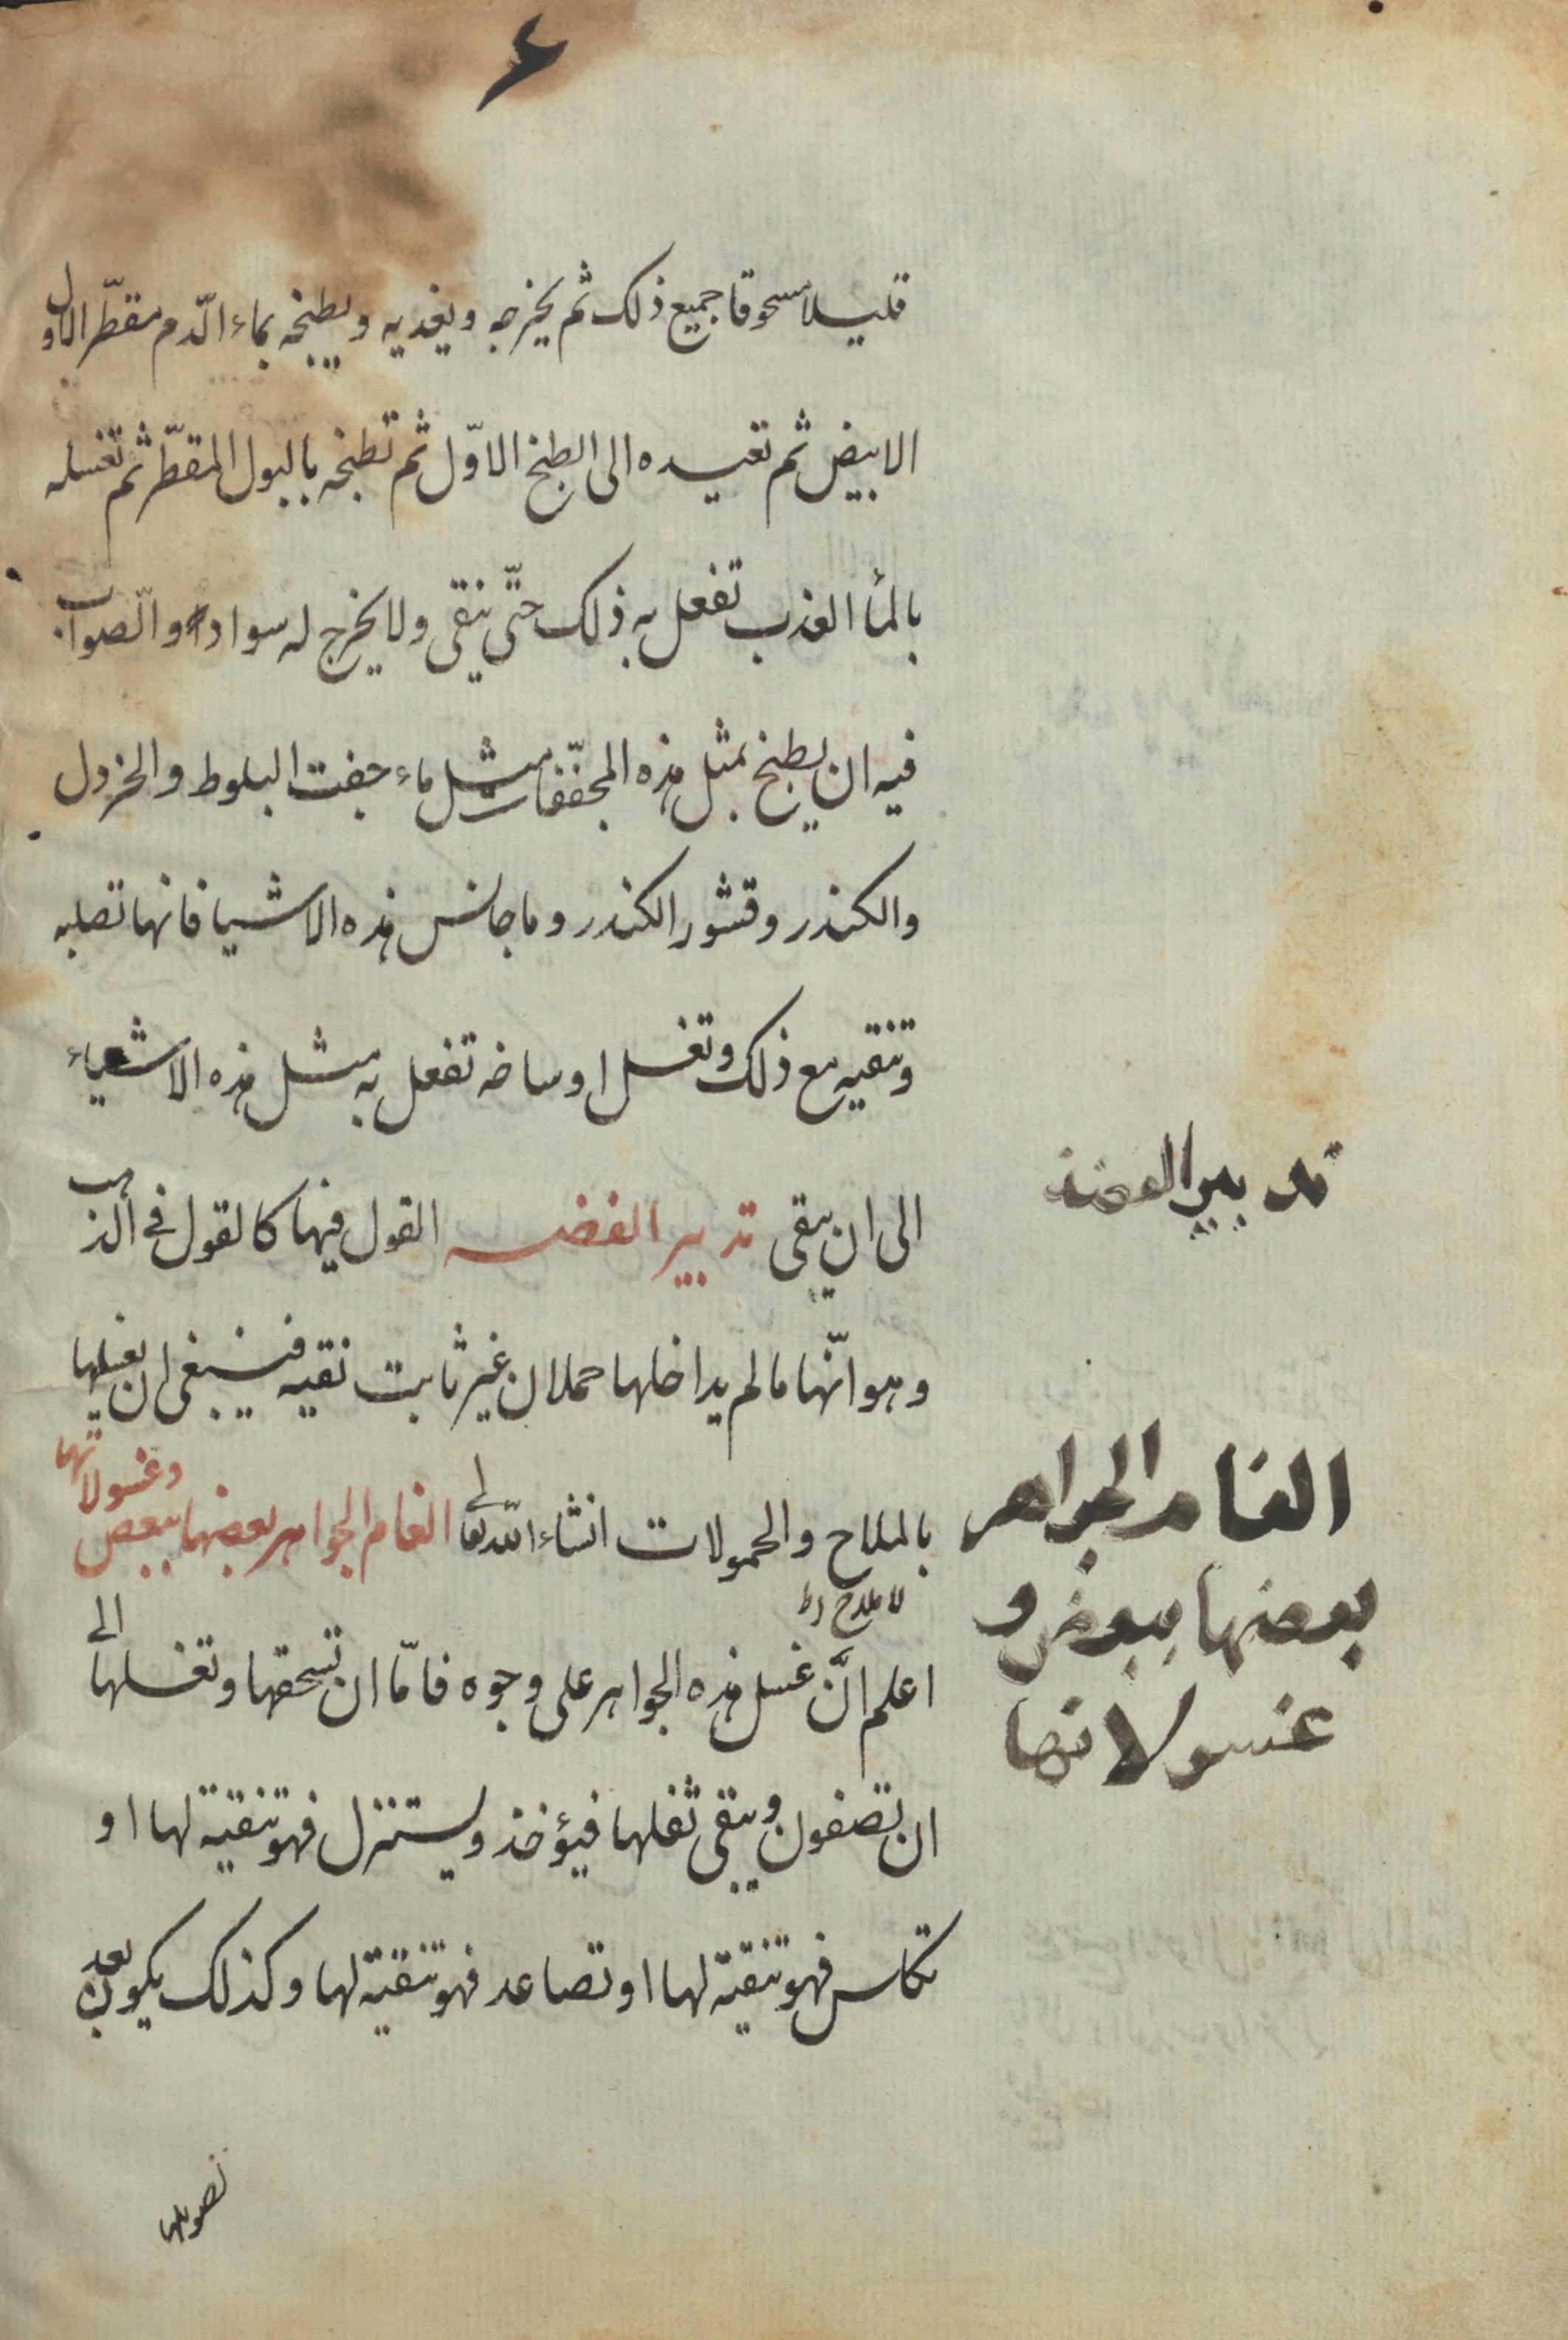 ۶
قليلا مسحوقا جميع ذلك ثم يخرجه ويغديه ويطبخه بماء الدّم مقطّر الاول
الابيض ثم تعيده الى الطبخ الاوّل ثم تطبخه بالبول المقطّر ثم تغسله
بالمأ العذب تفعل به ذلك حتّى ينقى ولا يخرج له سواد والصّواب
فيه ان يطبخ بمثل هذه المجفّفات مثل ماء جفت البلوط والخردل
والكندر وقشور الكندر وما جانس هذه الاشيا فانها تصلبه
وتنقيه مع ذلك وتغسل اوساخه تفعل به مثل هذه الاشياء
الى ان يبقى تدبير الفضه القول فيها كالقول في الذهب
تدبير الفضة
وهو انّها ما لم يداخلها حملان غير ثابت نقيه فينبغى ان يغسلها
بالملاح والحمولات انشاء اللّه تعالى الغام الجواهر بعضها ببعض وغسولاتها
الغام الجواهر
بعضها ببعض و
غسولاتها
اعلم انَّ غسل هذه الجواهر على وجوه فامّا ان تسحقها وتغسلها الى
ان تصفون ويبقى ثفلها فيؤخذ ويستنزل فهو تنقية لها او
تكلس فهو تنقية لها او تصاعد فهو تنقية لها وكذلك يكون بعد
تصويلها